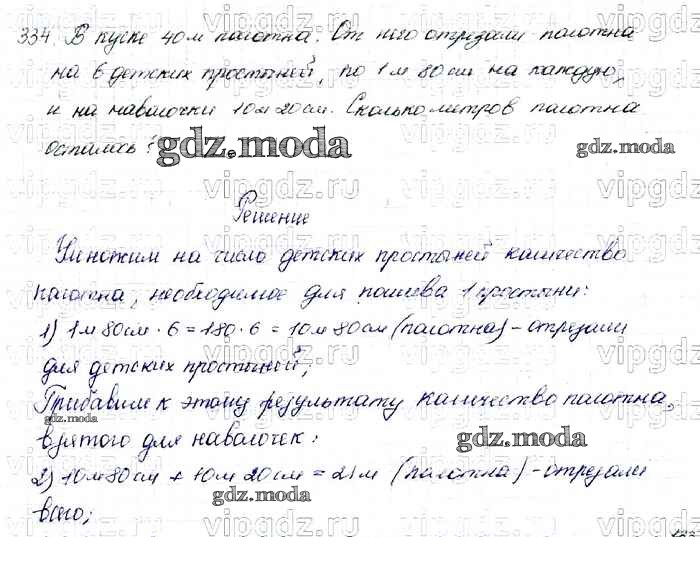 334. В куске 40 м полотна. От него отрезали полотна
на 6 детских простыней, по 1 м 80 см на каждую,
и на наволочки 10 м 20 см. Сколько метров полотна
осталось?
Решение
Умножим на число детских простыней количество
полотна, необходимое для пошева 1 простыни:
1) 1 м 80 см · 6 = 180 · 6 = 10 м 80 см (полотна) - отрезали
для детских простыней;
Прибавим к этому результату количество полотна,
взятого для наволочек:
2) 10 м 80 см + 10 м 20 см = 21 м (полотна) - отрезали
всего;
gdz.moda
gdz.moda
gdz.moda
gdz.moda
gdz.moda
vipgdz.ru